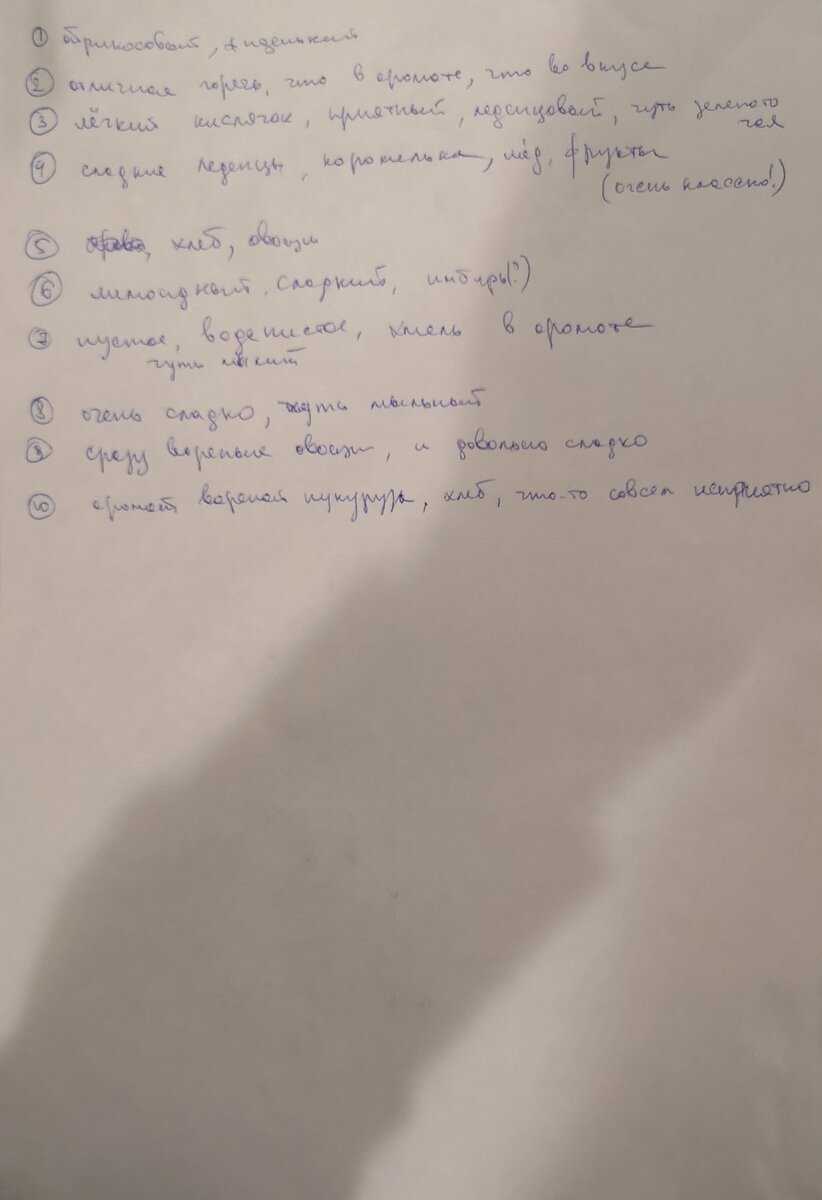 ① абрикосовый, жиденький
② отличная горечь, что в аромате, что во вкусе
③ лёгкий кислячок, приятный, леденцовый, чуть зеленого
чая
④ сладкие леденцы, карамелька, мёд, фрукты
(очень классно!)
⑤ хлеб, овощи
⑥ лимонадный, сладкий, имбирь(?)
⑦ пустое, воденистое, хмель в аромате
чуть
⑧ очень сладко, чуть мыльный
⑨ сразу вареные овощи, и довольно сладко
⑩ аромат вареной кукурузы, хлеб, что-то совсем неприятно